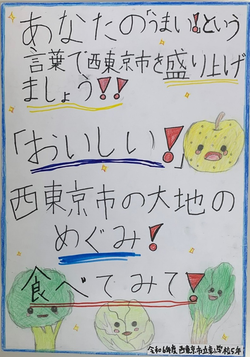 あなたの「うまい!」という
言葉で西東京市を盛り上げ
ましょう!!
「おいしい!」
西東京市の大地の
めぐみ!
食べてみて!
令和6年度 西東京市立